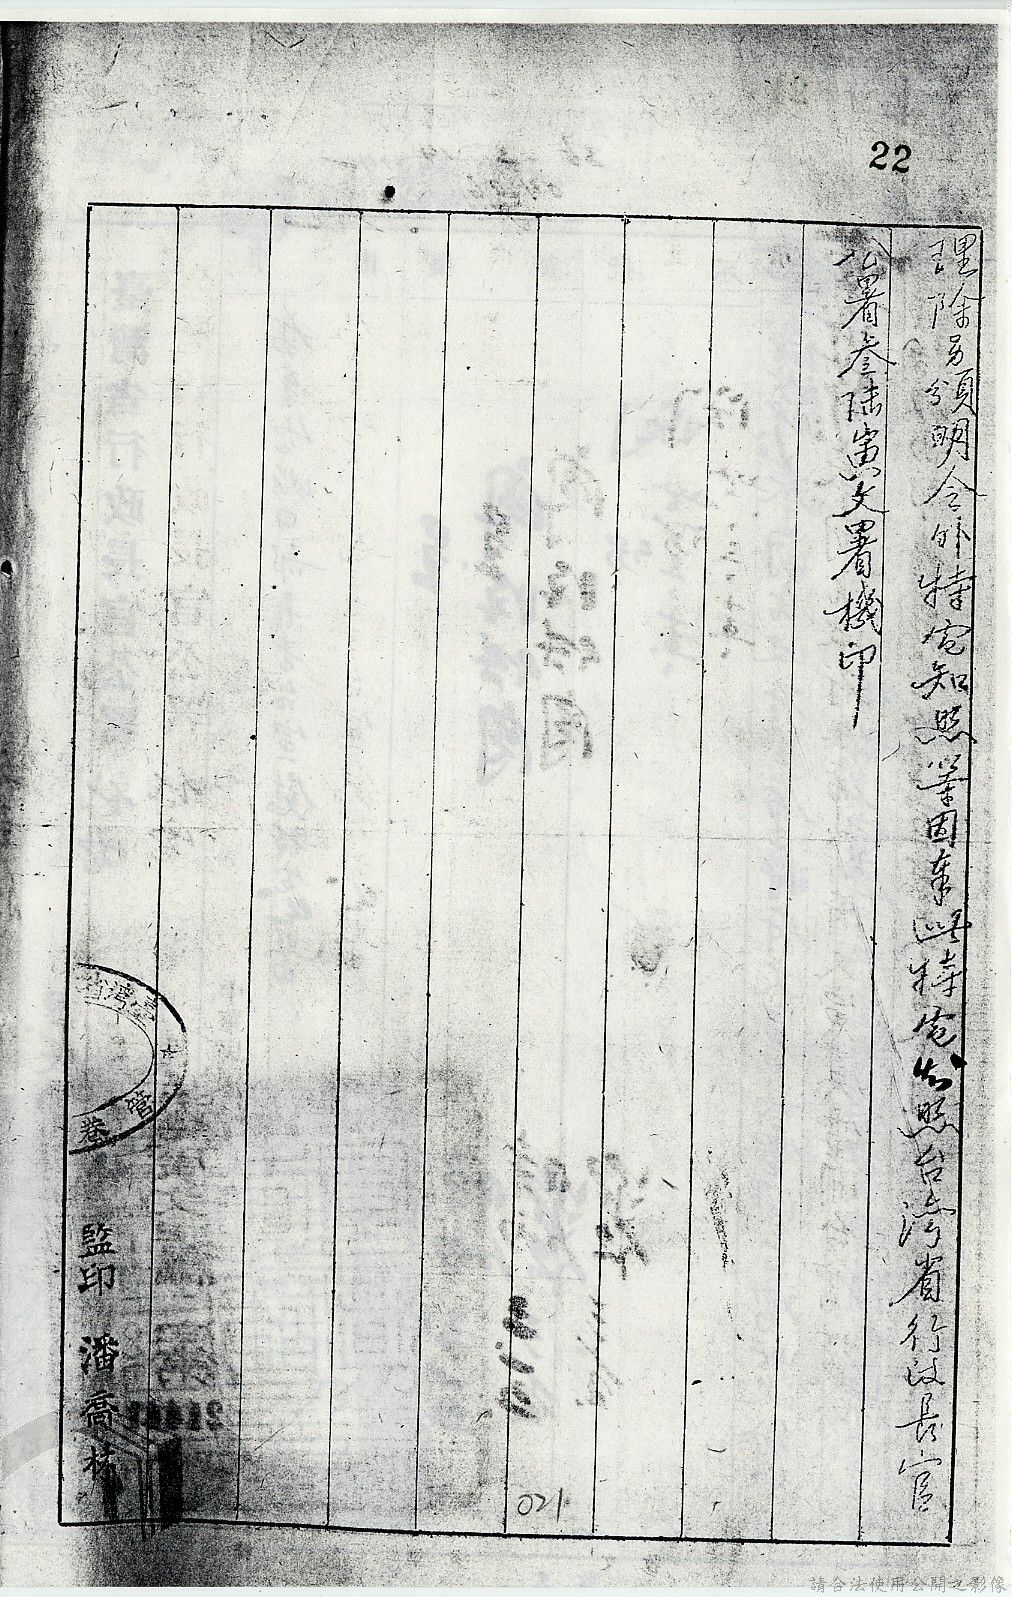 22
理除另頒明令外特電知照等因奉此特電知照台灣省行政長官
公署叁陆寅文署機印
台灣
管
卷
監印 潘喬林
021
請合法使用公開之影像